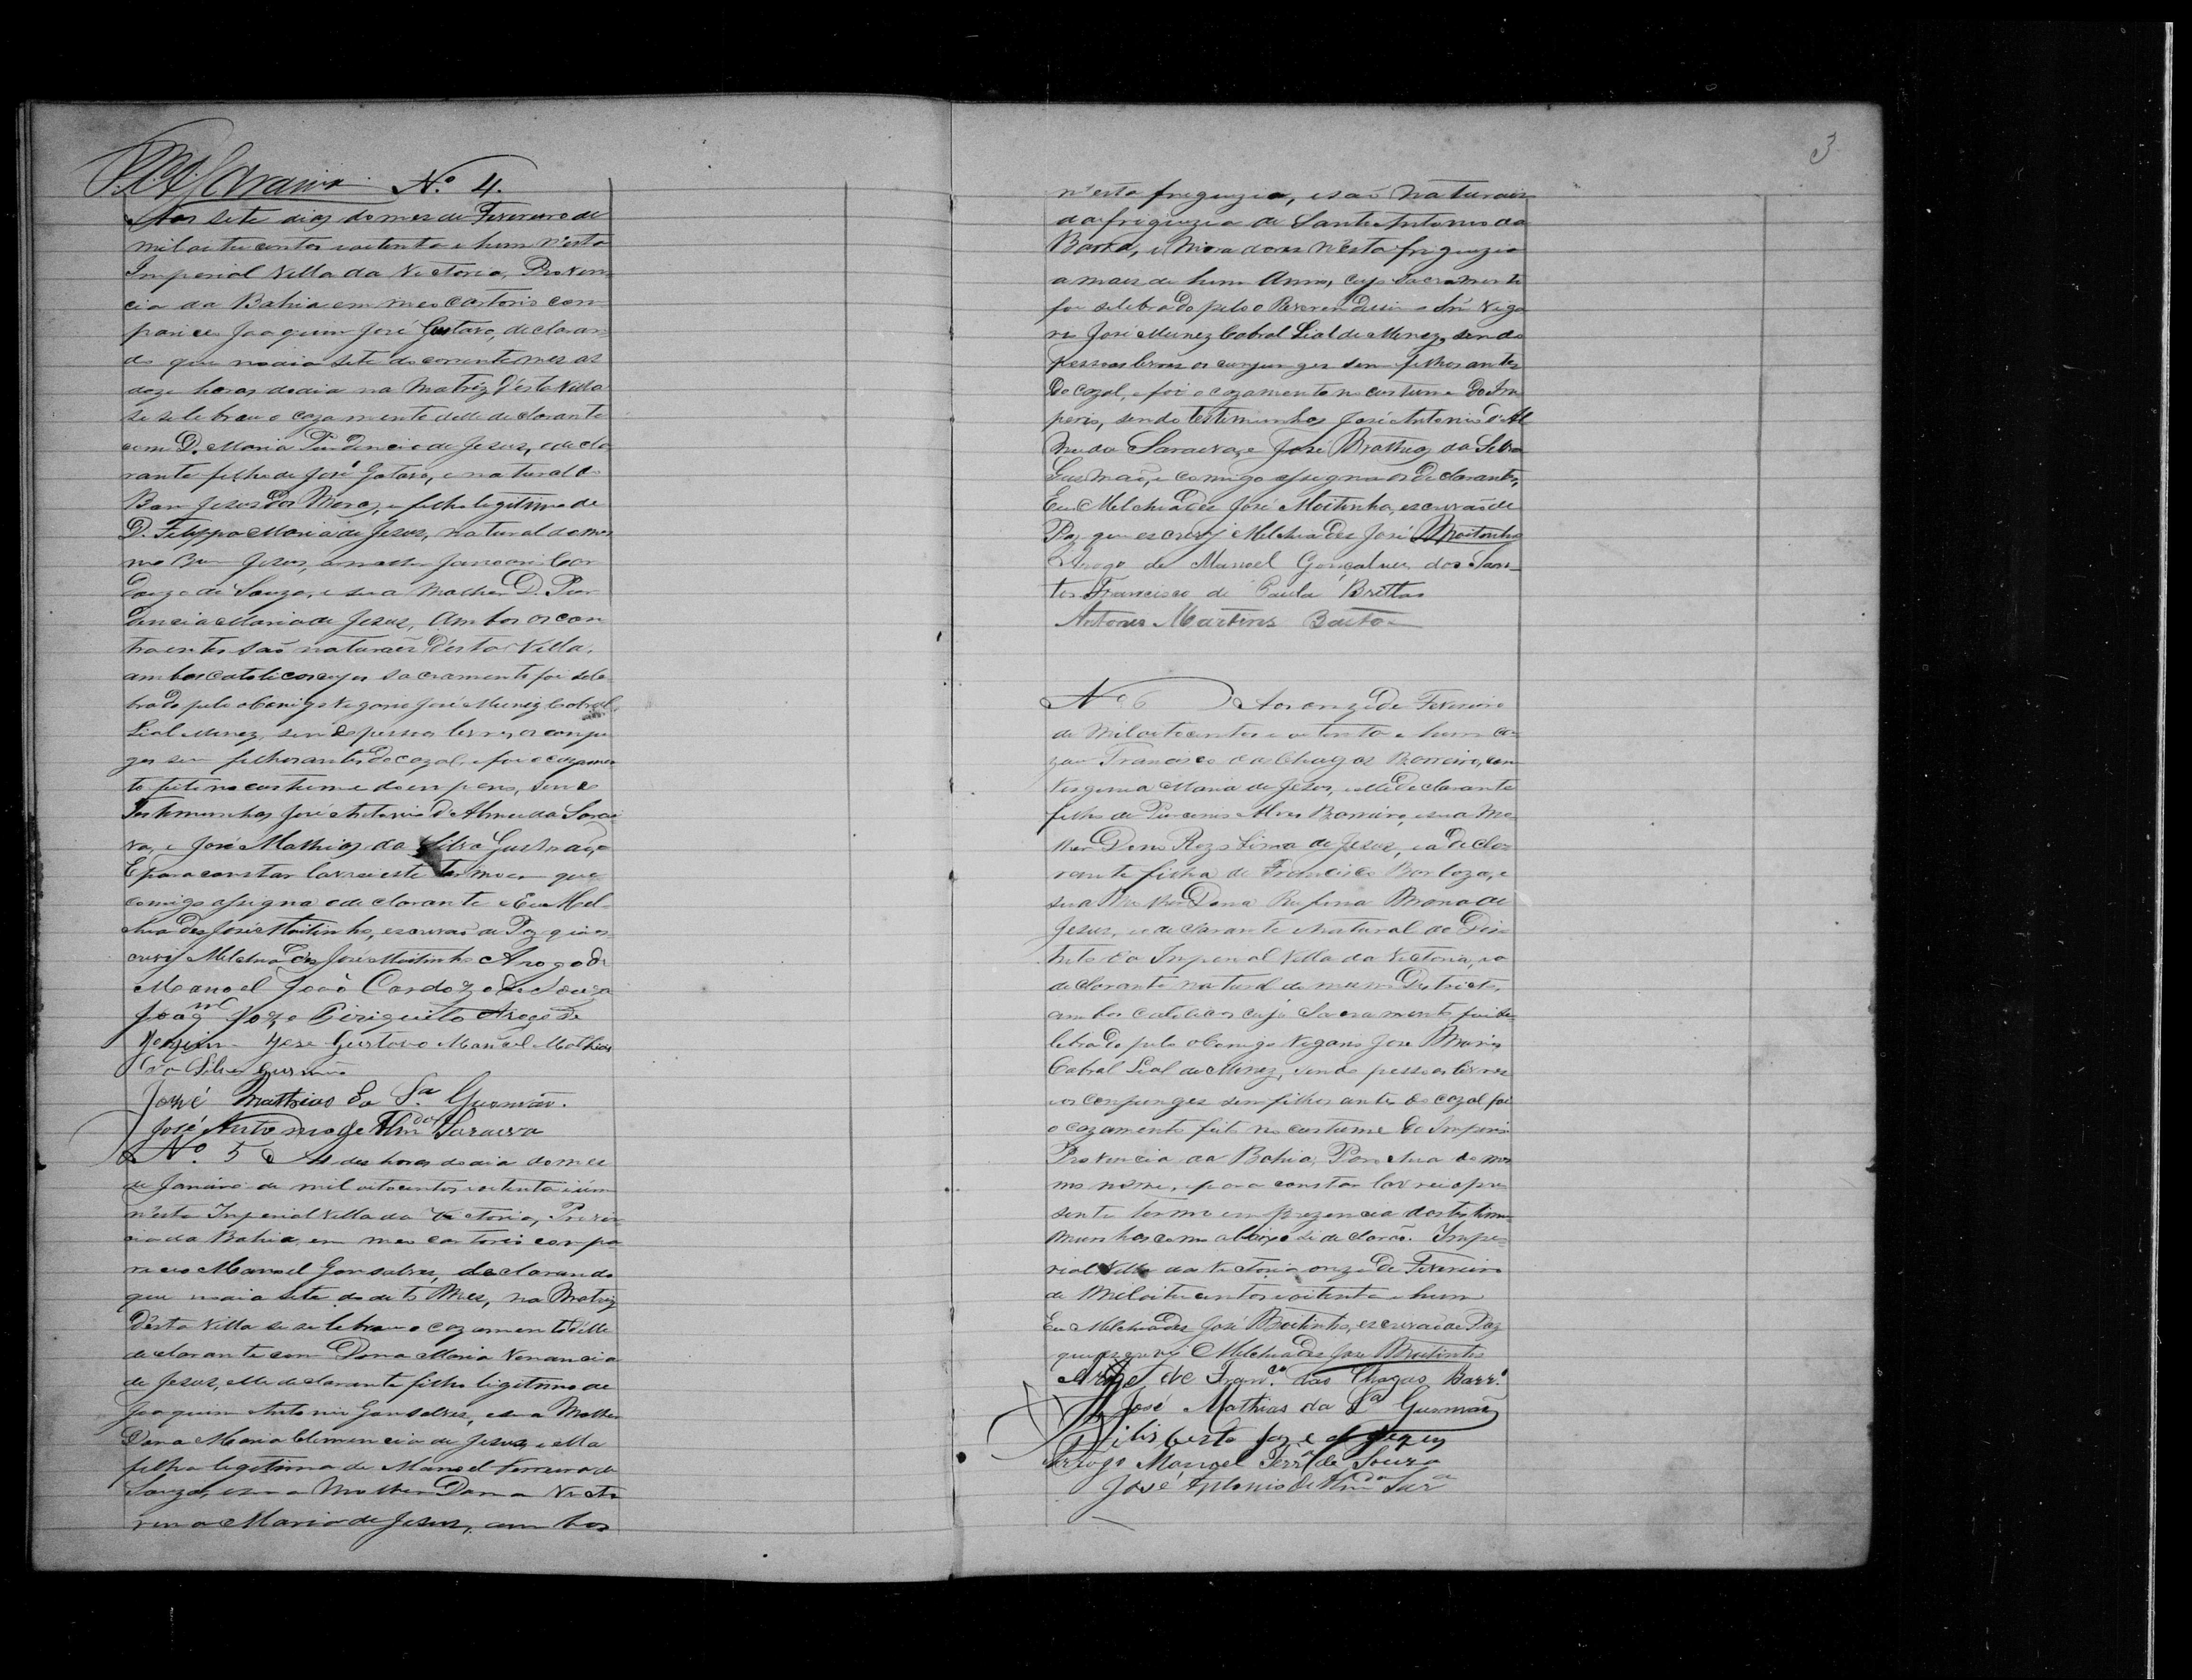 Nº 4.
Aos sete dias do mes de Fevereiro de
mil oitu centos e oitenta e hum n'esta
Imperial Villa da Victoria, Provin
cia da Bahia em meo cartorio com
pareceo Joaquim José Gustavo, declaran
do que no dia sete do corrente mes as
doze horas do dia na Matriz d'esta Villa
se selebrou o cazamento delle declarante
com D. Maria Prudencia de Jesus, o decla
rante filho de José Gotavo, e natural do
Bom Jesus dos Meiras, e filho legitimo de
D. Felippa Maria de Jesus, natural do mes
mo Bom Jesus, Cor
dozo de Souza, e sua Molher D. Pru
dencia Maria de Jesus, Ambos os con
traentes são naturaes d'esta Villa,
ambos catolicos cujo sacramento foi sele
brado pelo o Conigo Vigario José Muniz Cabral
Lial Menez, sendo pessoas livres os conju
ges sem filhos antes do cazal, e foi o cazamen
to feito no custume do imperio, sendo
Testimunhas José Antonio d'Almeida Sarai
va, e José Mathias da Silva Gusmão,
E para constar lavrei este termo em que
comigo assigna o declarante Eu Mel
chiades José Moitinho, escrivão de Paz que es
crevy Melchiades José Moitinho Arogo de
Manoel João Cardozo de Souza
Joaqm Joze Piriquito Arogo de
Joaquim Jose Gustavo Manoel Mathias
da Silva Gusmão
José Mathias da Sa Gusmão.
José Antonio de Almda Saraiva
Nº. 5 As des horas do dia do mes
de Janeiro de mil oitocentos e oitenta e um
n'esta Imperial Villa da Victoria, Provin
cia da Bahia, em meo cartorio compa
receo Manoel Gonsalves, declarando
que no dia sete do dito Mes, na Matriz
d'esta Villa se selebrou o cazamento d'elle
declarante com Dona Maria Venancia
de Jesus, elle declarante filho legitimo de
Joaquim Antonio Gonsalves, e sua Molher
Dona Maria Clemencia de Jesus, e ella
filha legitima de Manoel Ferreira de
Souza, e sua Molher Dona Victo
rina Maria de Jesus, ambos
3
n'esta freguezia, e são naturais
da friguezia de Santo Antonio da
Barra, e Moradores n'esta friguezia
a mais de hum Anno, cujo sacramento
foi selebrado pelo o Reverendissimo Snr Viga
rio José Muniz Cabral Lial de Menez, sendo
pessoas livres os conjunges sem filhos antes
do cazal, e foi o cazamento no custume do Im
perio, sendo testimunhas José Antonio d'Al
meida Saraiva, e José Mathias da Silva
Gusmão, e comigo assigna os declarantes,
Eu Melchiades José Moitinho, escrivão de
Paz que escrevy Melchiades José Moitinho
Arogo de Manoel Gonçalves dos San
tos Francisco de Paula Brittas
Antonio Martins
Nº 6 Aos onze de Fevereiro
de mil oitocentos e oitenta e hum ca
zou Francisco das Chagas Barreiro, com
Virginia Maria de Jesus, elle declarante
filho de Alves Barreiro, e sua Mo
lher Dona Roza Lima de Jesus, e a decla
rante filha de Francisco Barboza, e
sua Molher Dona Rufina Maria de
Jesus, o declarante Natural do Dis
trito da Imperial Villa da Victoria, e a
declarante natural do mesmo Districto,
ambos catolicos cujo Sacramento foi se
lebrado pelo o Conigo Vigario José Muniz
Cabral Lial de Menez, sendo pessoas livres
e os Conjunges sem filhos antes do cazal foi
o cazamento feito no custume do Imperio
Provincia da Bahia, Parochia do mes
mo nome, e para constar lavrei o pre
sente termo em prezencia das testimu
munhas como abaixo se declarão. Impe
rial Villa da Victoria onze de Fevereiro
de Mil oitucentos e oitenta e hum
Eu Melchiades José Moitinho, escrivão de Paz
que escrevi Melchiades Jose Moitinho
Arogo de Franco das Chagas Barro
José Mathias da Sa Gusmão
Arogo Manoel Ferra de Souza
José Antonio de Almda Sara